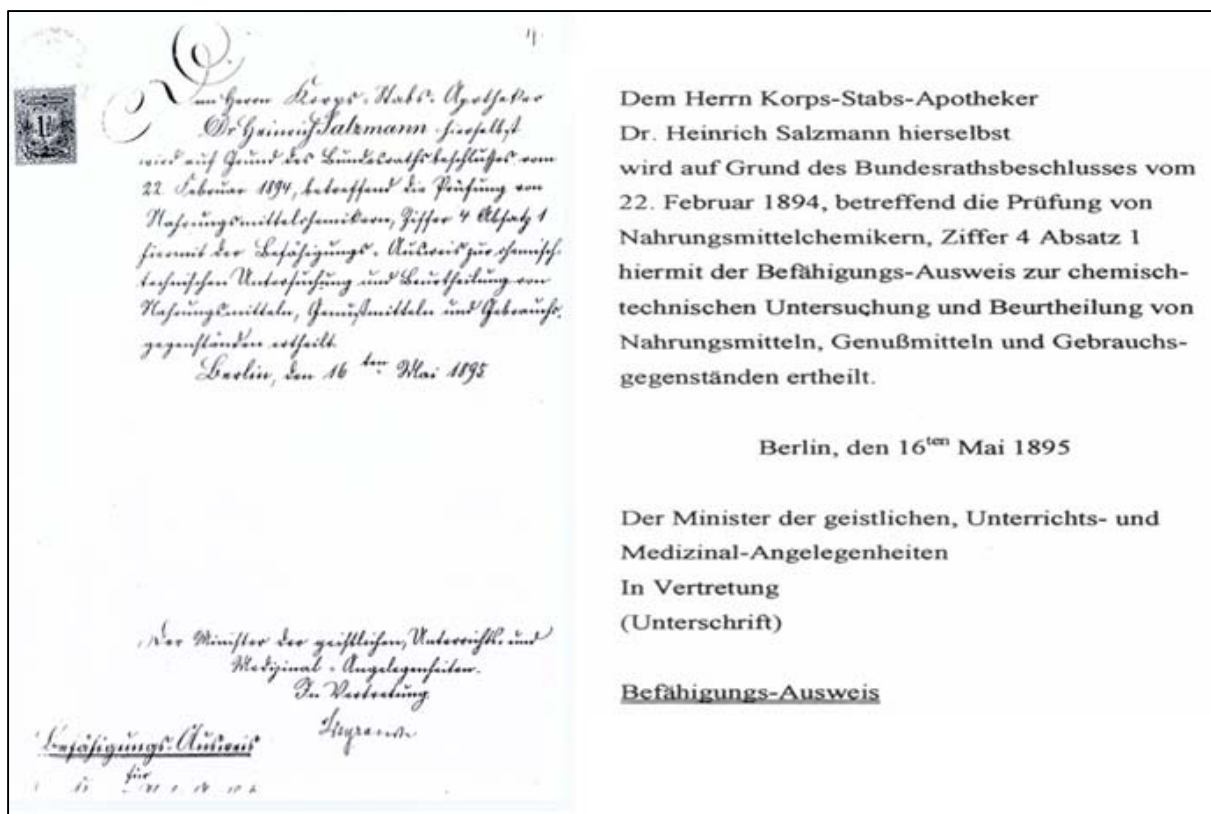 4.
1
Dem Herrn Korps-Stabs-Apotheker
Dr Heinrich Salzmann hierselbst
wird auf Grund des Bundesrathsbeschlusses vom
22 Februar 1894, betreffend die Prüfung von
Nahrungsmittelchemikern, Ziffer 4 Absatz 1
hiermit der Befähigungs-Ausweis zur chemisch-
technischen Untersuchung und Beurtheilung von
Nahrungsmitteln, Genußmitteln und Gebrauchs-
gegenständen ertheilt.
Berlin, den 16 ten Mai 1895
Der Minister der geistlichen, Unterrichts- und
Medizinal-Angelegenheiten.
In Vertretung
Befähigungs-Ausweis
für
Dem Herrn Korps-Stabs-Apotheker
Dr. Heinrich Salzmann hierselbst
wird auf Grund des Bundesrathsbeschlusses vom
22. Februar 1894, betreffend die Prüfung von
Nahrungsmittelchemikern, Ziffer 4 Absatz 1
hiermit der Befähigungs-Ausweis zur chemisch-
technischen Untersuchung und Beurtheilung von
Nahrungsmitteln, Genußmitteln und Gebrauchs-
gegenständen ertheilt.
Berlin, den 16ten Mai 1895
Der Minister der geistlichen, Unterrichts- und
Medizinal-Angelegenheiten
In Vertretung
(Unterschrift)
Befähigungs-Ausweis